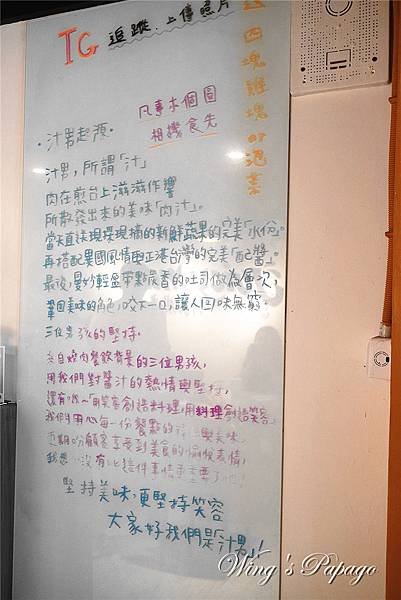 IG 追蹤.上傳照片
送四塊雞塊or泡菜
凡事本個圖
相機食先
·汁男起源·
汁男,所謂「汁」
肉在煎台上滋滋作響
所散發出來的美味「肉汁」。
當天直接現採現摘的新鮮蔬果的完美「水份」。
再搭配異國風情與正港台灣的完美「醬」。
最後,輕盈帶點最香的吐司做為層次,
鞏固美味的角色,咬下一口,讓人回味無窮。
三位男孩的堅持。
來自燒肉餐飲背景的三位男孩,
用我們對醬汁的熱情與堅持,
還有,用笑容創造料理,用料理創造笑容,
我們用心每一份餐點的 與美味,
期盼顧客享受到美食的愉悅表情,
我想 沒有比這件事情更重要了吧!
堅持美味,更堅持笑容
大家好我們是汁男!!
Wing's Papago